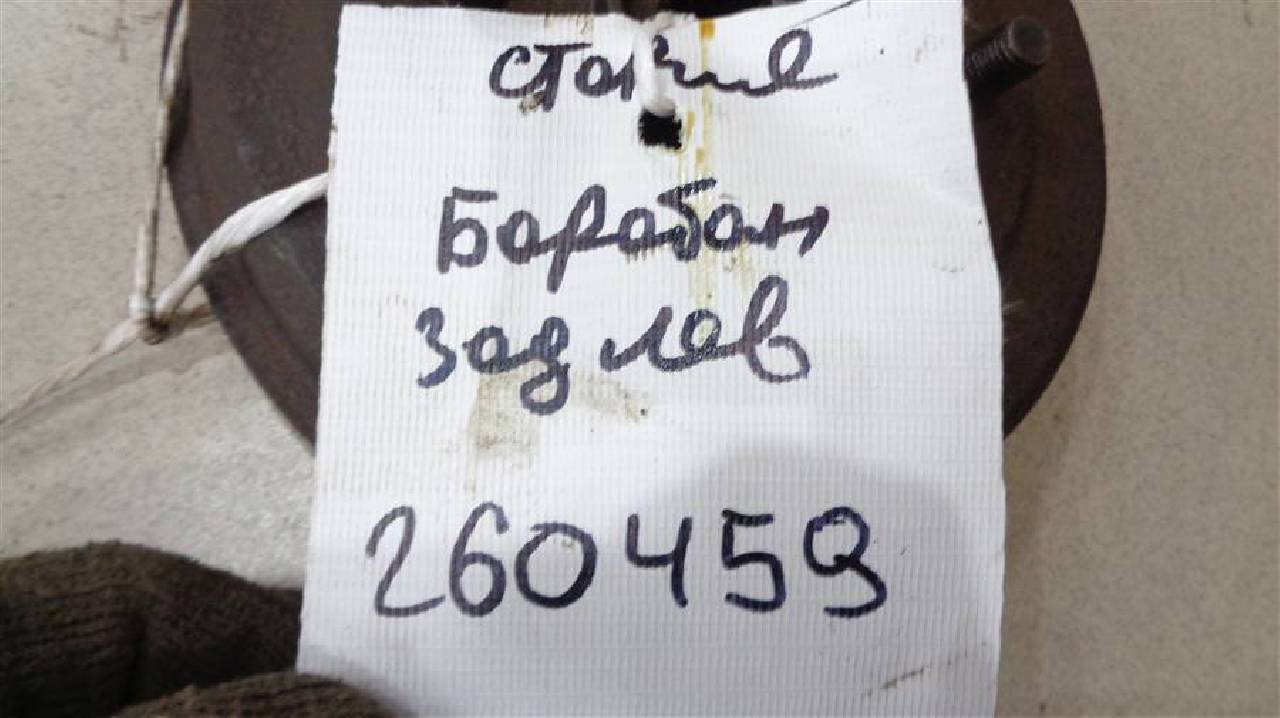 Барабан
зад лев
260459